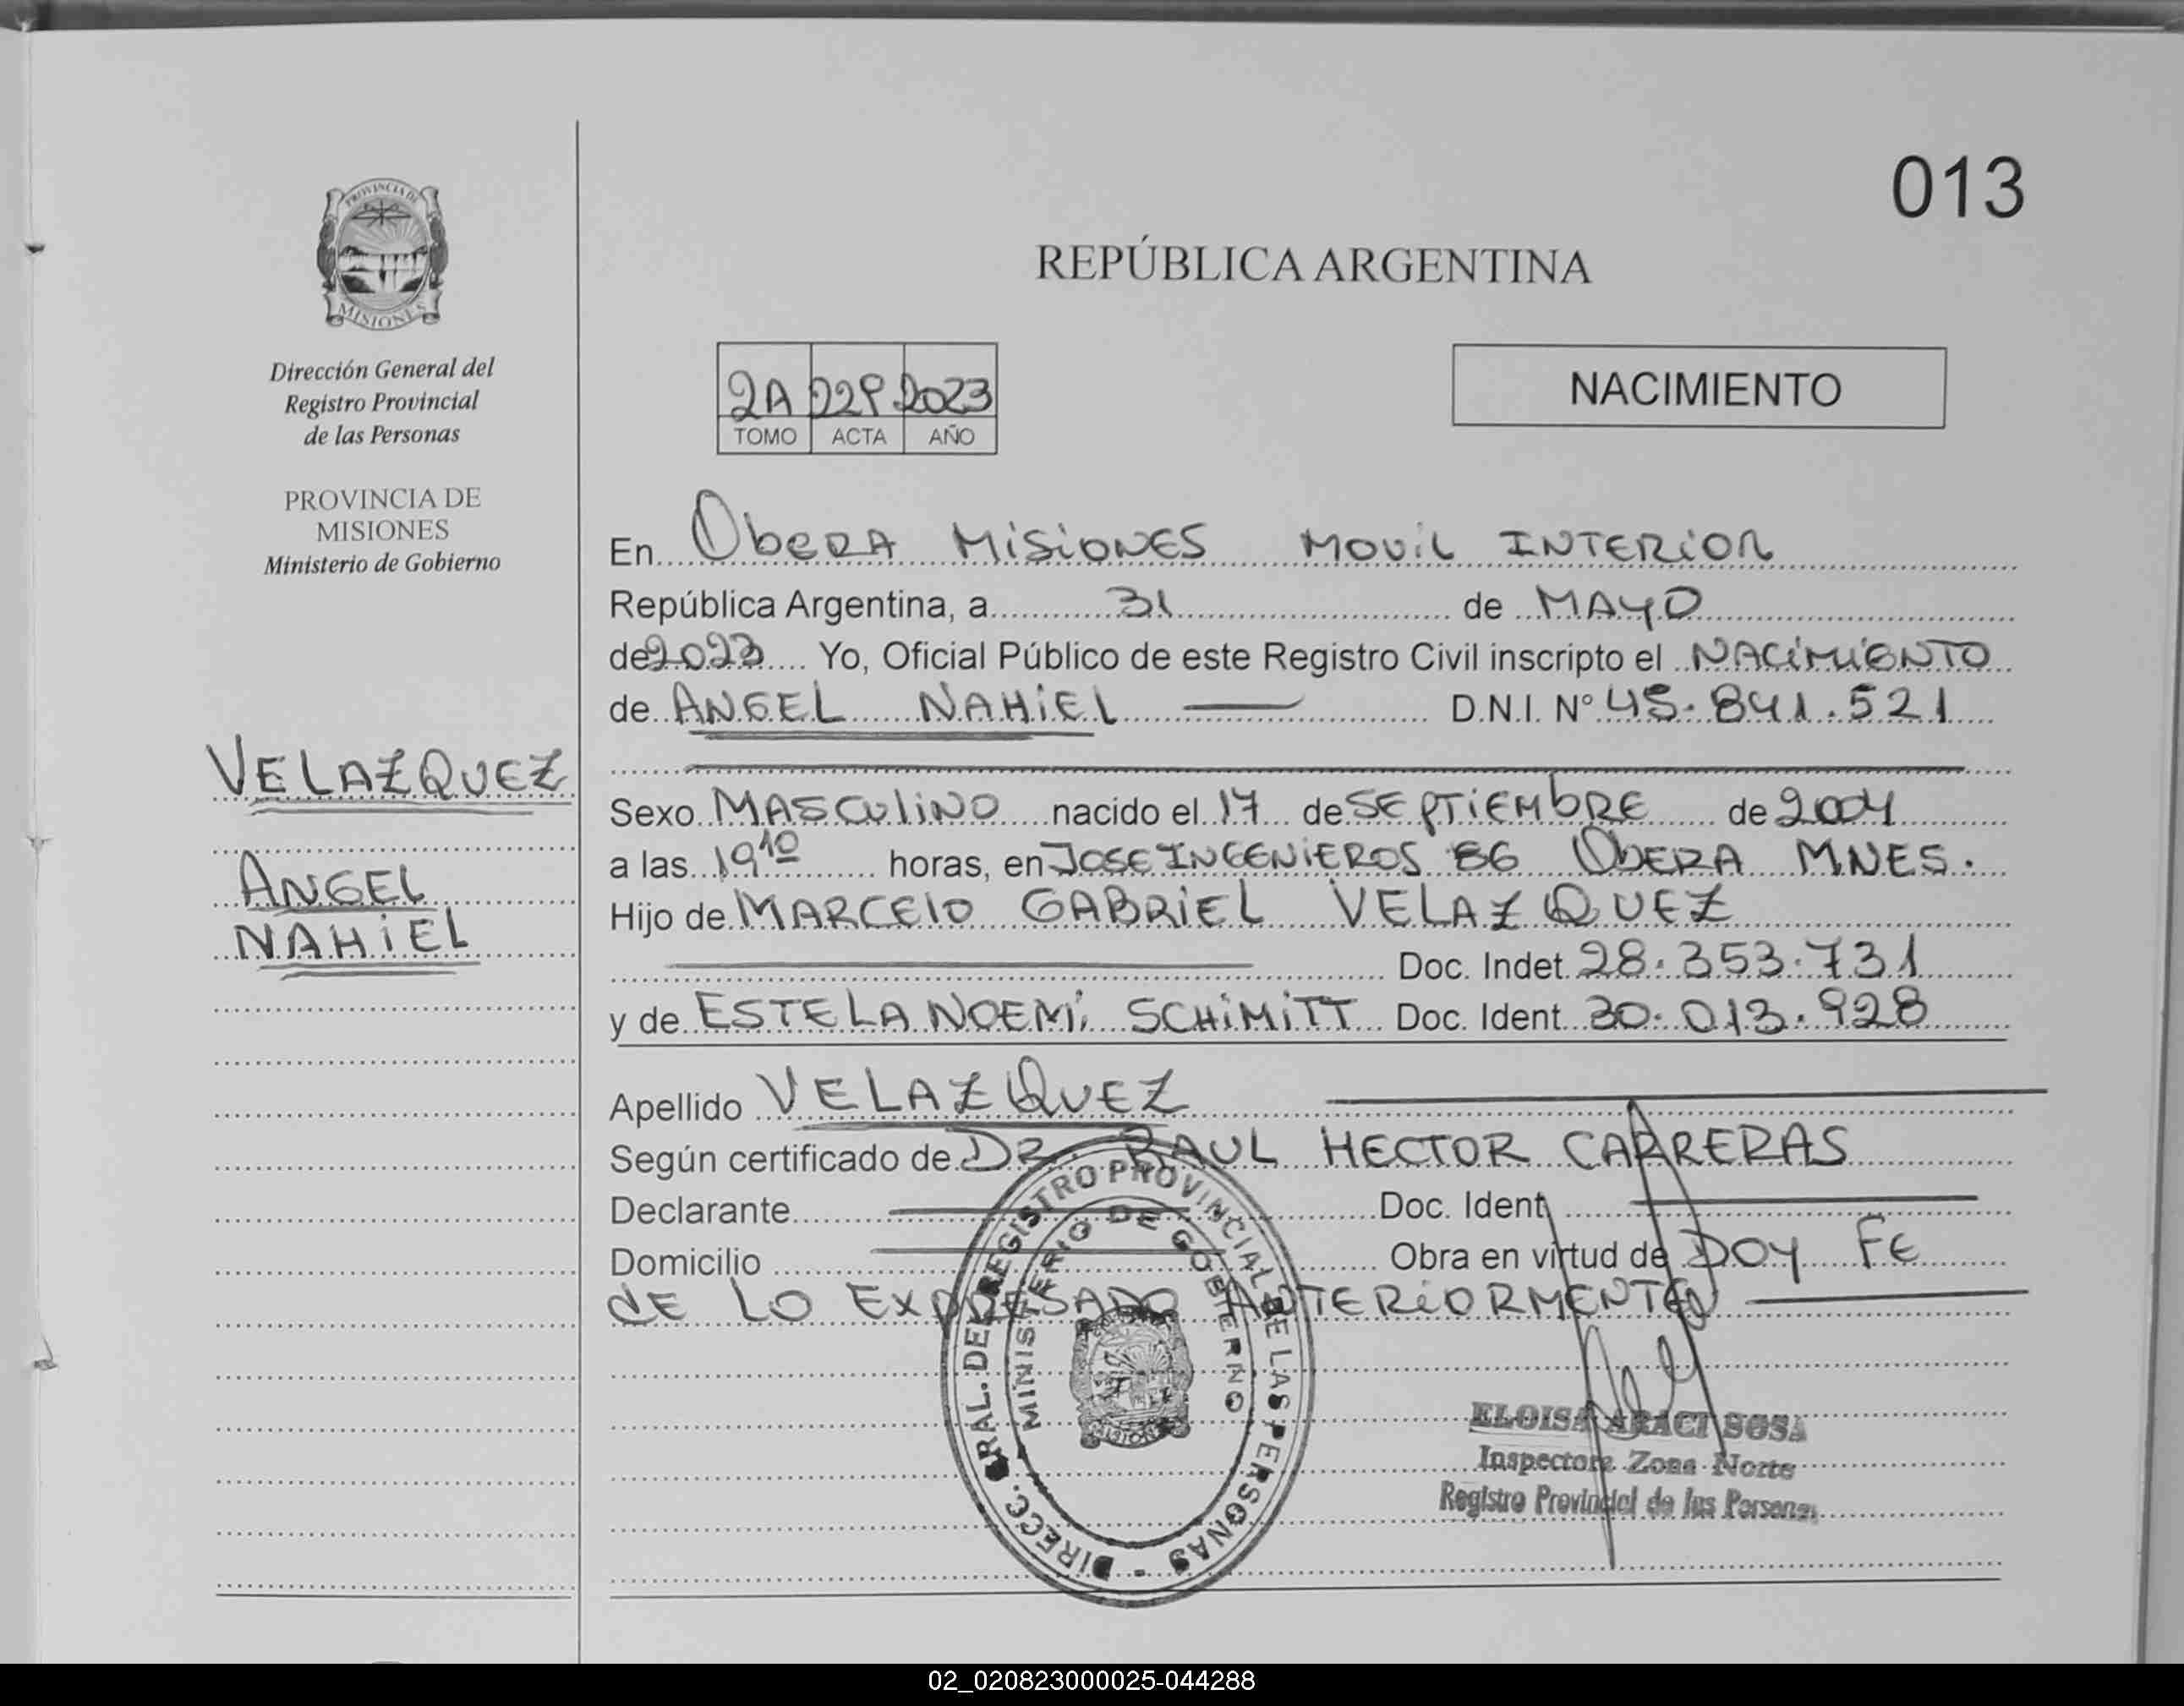 013
PROVINCIA DE
MISIONES
REPÚBLICA ARGENTINA
Dirección General del
Registro Provincial
de las Personas
PROVINCIA DE
MISIONES
Ministerio de Gobierno
VELAZQUEZ
ANGEL
NAHIEL
2A 229 2023
TOMO ACTA AÑO
NACIMIENTO
En ObERA MISIONES MOVIL INTERIOR
República Argentina, a 31 de MAYO
de 2023 Yo, Oficial Público de este Registro Civil inscripto el NACIMIENTO
de ANGEL NAHIEL D.N.I. N° 45.841.521
Sexo MASCULINO nacido el 17 de SEPTIEMbRE de 2004
a las 19 10 horas, en JOSE INGENIEROS 86 ObERA MNES.
Hijo de MARCElO GABRIEL VELAZQUEZ
Doc. Indet. 28.353.731
y de ESTELA NOEMI SCHIMITT Doc. Ident. 30.013.928
Apellido VELAZQUEZ
Según certificado de DR. RAUL HECTOR CARRERAS
Declarante Doc. Ident.
Domicilio Obra en virtud de DOY FE
dE LO EXPRESADO ANTERIORMENTE
DIRECC. GRAL. DEL REGISTRO PROVINCIAL DE LAS PERSONAS -
MINISTERIO DE GOBIERNO
ELOISA ARACI SOSA
Inspectora Zona Norte
Registro Provincial de las Personas
02_020823000025-044288